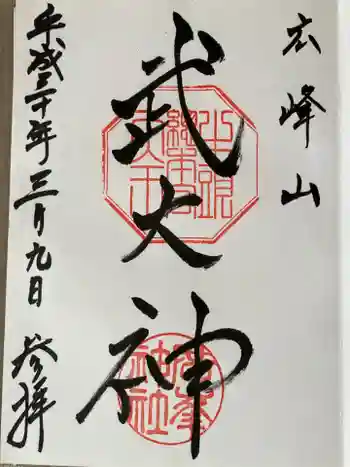 広峰山
武大神
平成三十年三月九日 参拝